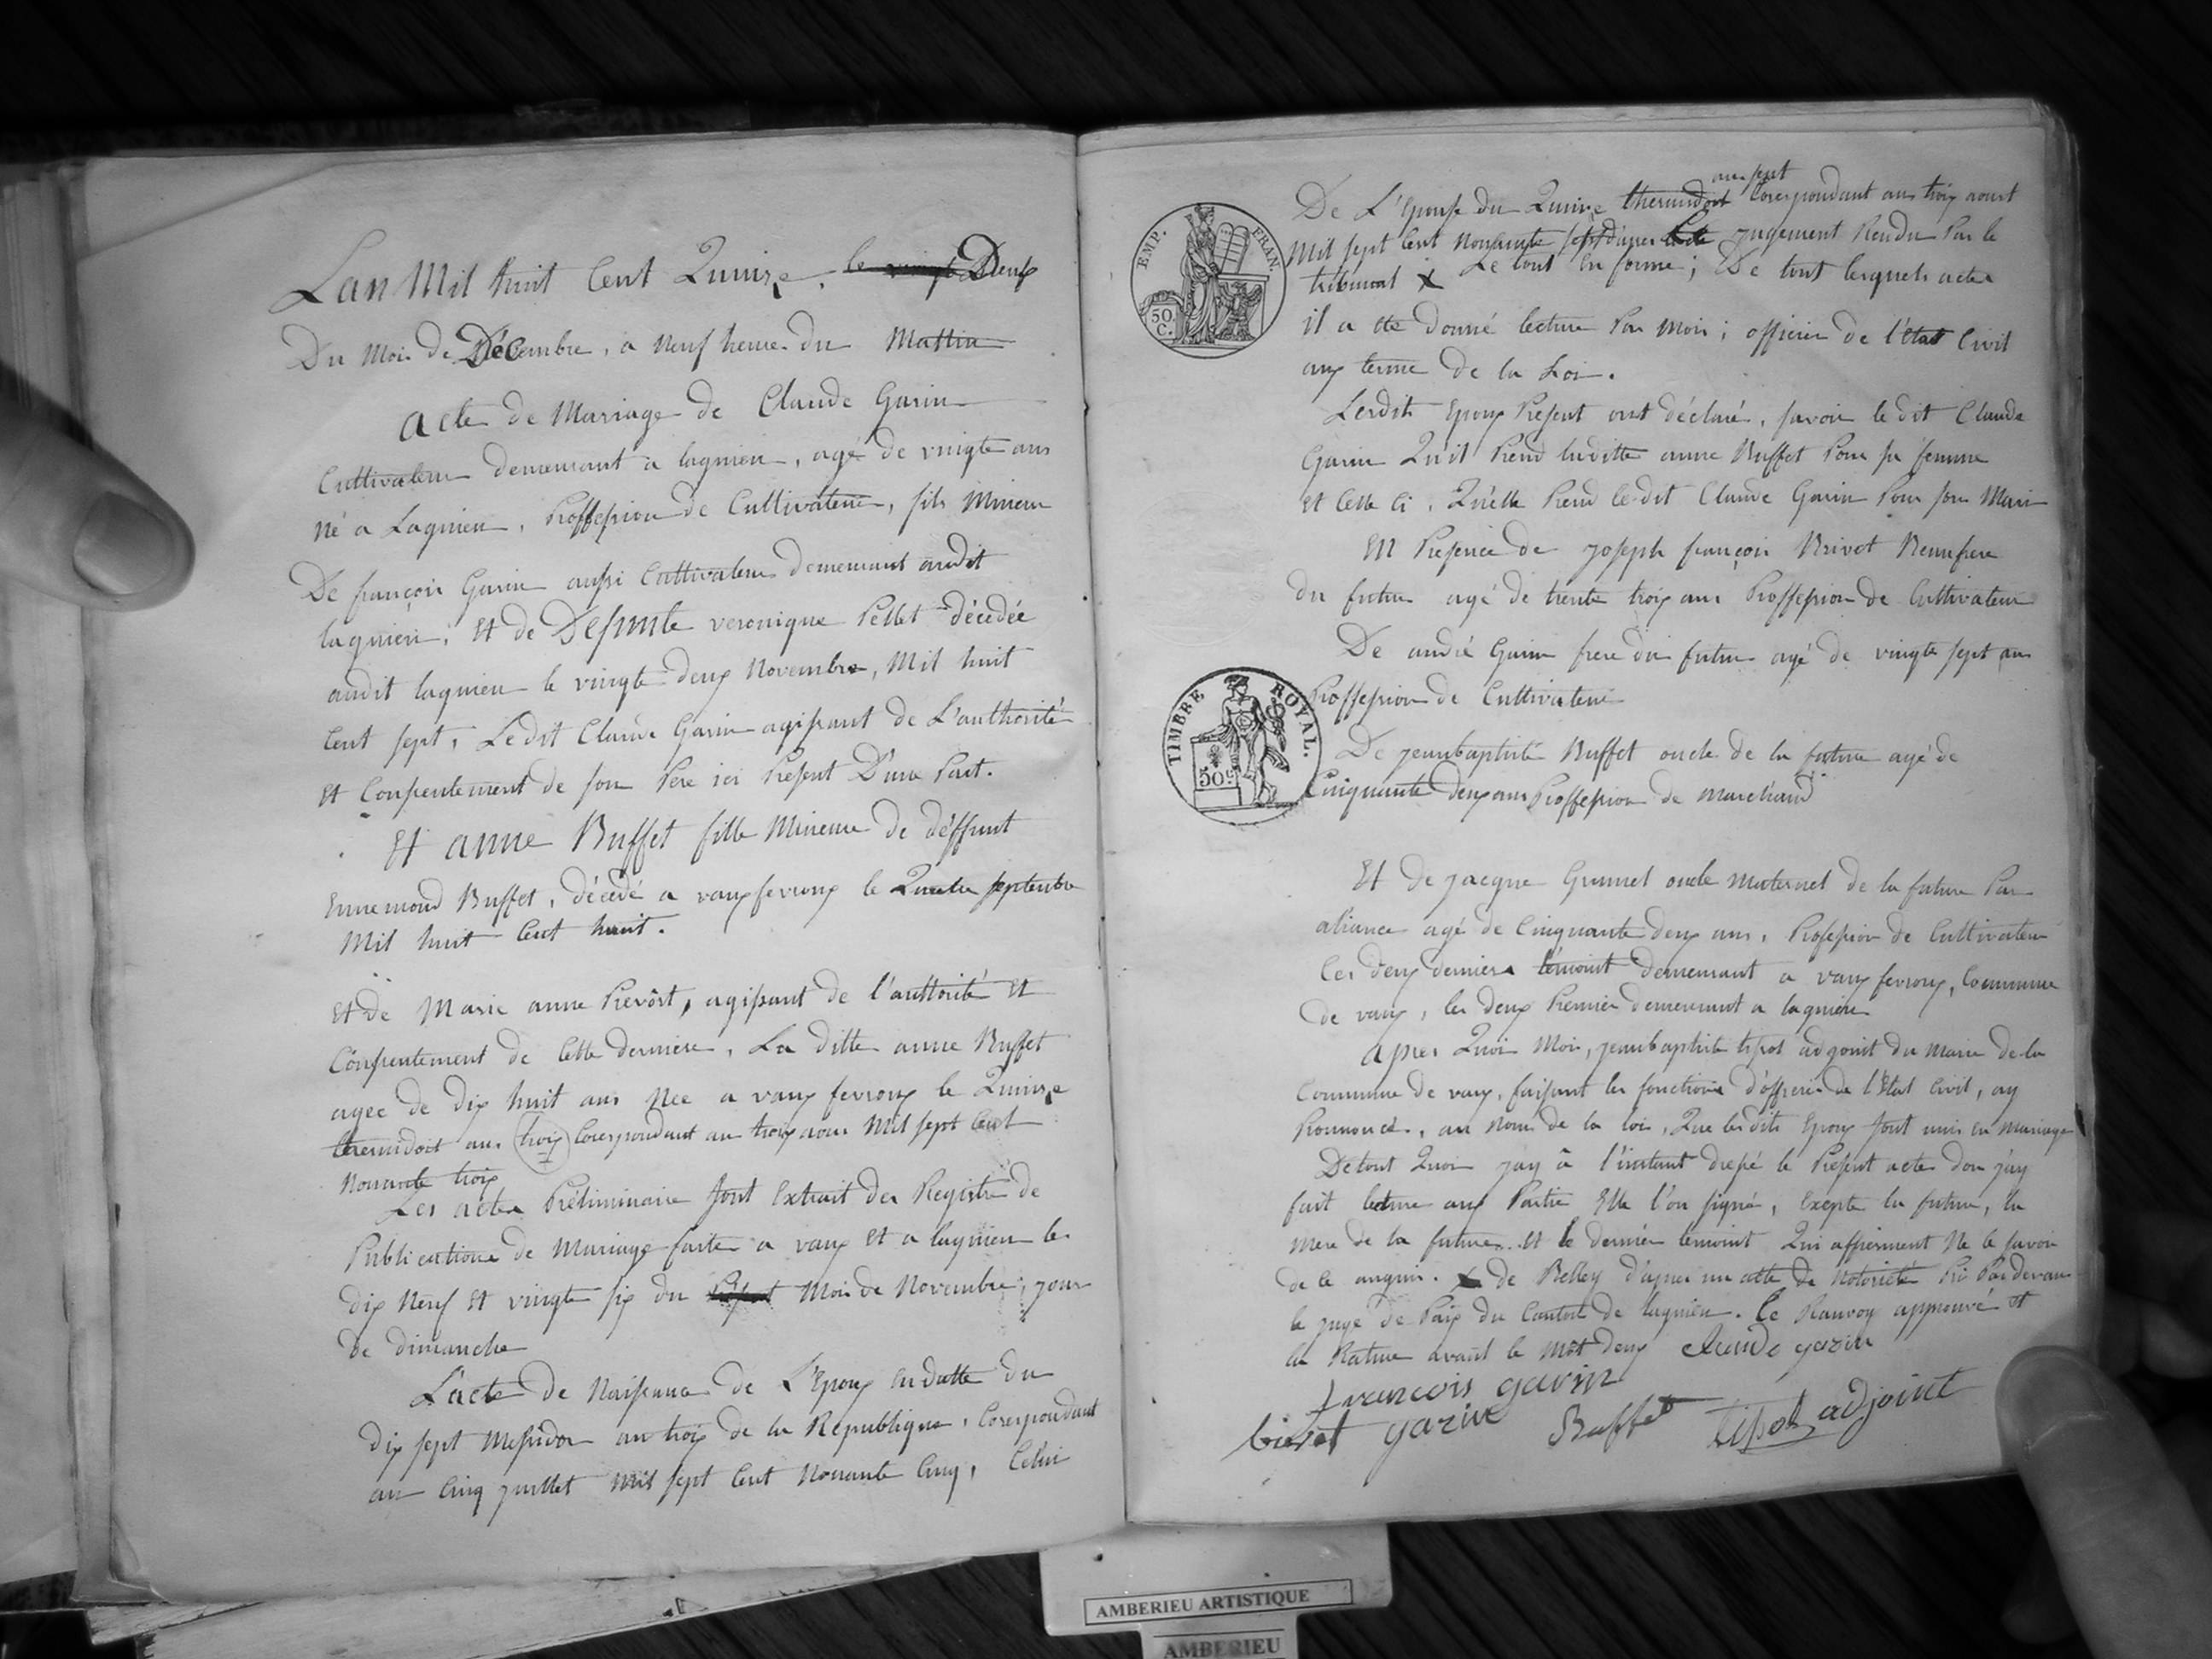 Lan Mil huit Cent Quinze, le vingt Deux
Du Mois de Décembre, a Neuf heure du Mattin
acte de Mariage de Claude Garin
Cultivateur demeurant a lagnieu, agé de vingte ans
né a Lagnieu, Proffession de Cultivateur, fils Mineur
De françois Garin aussi Cultivateur demeurant audit
lagnieu, Et de Defunte veronique Pellet décédée
audit lagnieu le vingte deux Novembre, Mil huit
Cent sept, Ledit Claude Garin agissant de L'authorité
Et Consentement de son Pere ici Présent D'une Part.
Et anne Buffet fille Mineure de déffunt
Ennemond Buffet, décédé a vaux fevroux le Quatre septembre
Mil huit Cent huit.
Et de Marie anne Prevôst, agissant de l'authorité Et
Consentement de Cette derniere, La ditte anne Buffet
agee de dix huit ans Nee a vaux fevroux le Quinze
thermidort ans troix Corespondant au troix aous Mil sept Cent
Nonante troix
Les actes Préliminaire sont Extrait des Registre de
Publications de Mariage faites a vaux Et a lagnieu les
dix Neuf Et vingte six du Mois de Novembre, jour
de dimanche
L'acte de Naissance de L'Epoux en datte du
dix sept Messidor an troix de la République, Corespondant
au Cinq juillet Mil sept Cent Nonante Cinq, Celui
EMP. FRAN.
50 C.
ans sept
De L'Epouse du Quinze thermidort Corespondant aus troix aoust
Mil sept Cent Nonante sept d'apres Le jugement Rendu Par le
tribunal x Le tout En forme; De tout lesquels actes
il a été donné lecture Par Moi; officier de l'état Civil
aux terme de la Loi.
Lesdits Epoux Présent ont déclaré, savoir le dit Claude
Garin Qu'il Prend laditte anne Buffet Pour sa femme
Et Celle Ci, Qu'elle Prend Ledit Claude Garin Pour son Mari
En Présence de joseph françois Brivet Beaufrere
du futur agé de trente troix ans Proffession de Cultivateur
De andré Garin frere du futur agé de vingte sept ans
Proffession de Cultivateur
TIMBRE ROYAL.
50 c
De jeanbaptiste Buffet oncle de la future agé de
Cinquante deux ans Proffession de Marchand
Et de jacque Grumet oncle maternel de la future Par
aliance agé de Cinquante deux ans, Profession de Cultivateur
Les deux derniers témoint demeurant a vaux fevroux, Commune
de vaux, les deux Premier demeurant a lagnieu
apres Quoi Moi, jeanbaptiste tissot adjoint du Maire de la
Commune de vaux, faisant les fonctions d'officier de l'Etat Civil, ay
Prononcé, au Nom de la loi, Que lesdits Epoux sont unis en Mariage
De tout Quoi jay à l'instant dressé le Présent acte don j'ay
fait lecture aux Partie Elle l'on signé, Exepte la future, la
mere de la future Et le dernier témoint Qui affirment Ne le savoir
de ce anquis. x de Belley d'apres un acte de Notoriété Par devan
le juge de Paix du Canton de lagnieu. Ce Ranvoy approuvé Et
la Rature avant le mot deux claude garin
francois garin
brivet garin Buffet tissot adjoint
AMBERIEU ARTISTIQUE
AMBERIEU